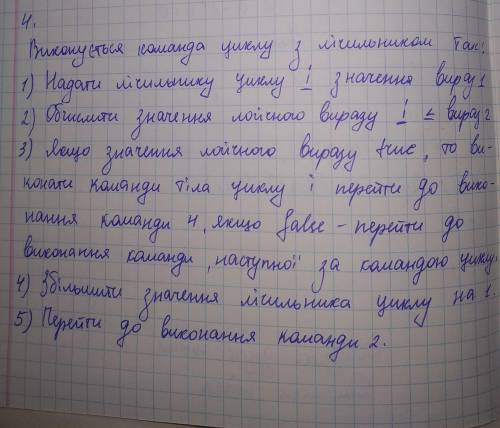 4.
Виконується команда циклу з лічильником так:
1) Надати лічильнику циклу i значення вираз 1
2) Обчислити значення логічного виразу i ≤ вираз 2
3) Якщо значення логічного виразу true, то ви-
конати команди тіла циклу і перейти до вико-
нання команди 4, якщо false - перейти до
виконання команди, наступної за командою циклу.
4) Збільшити значення лічильника циклу на 1.
5) Перейти до виконання команди 2.